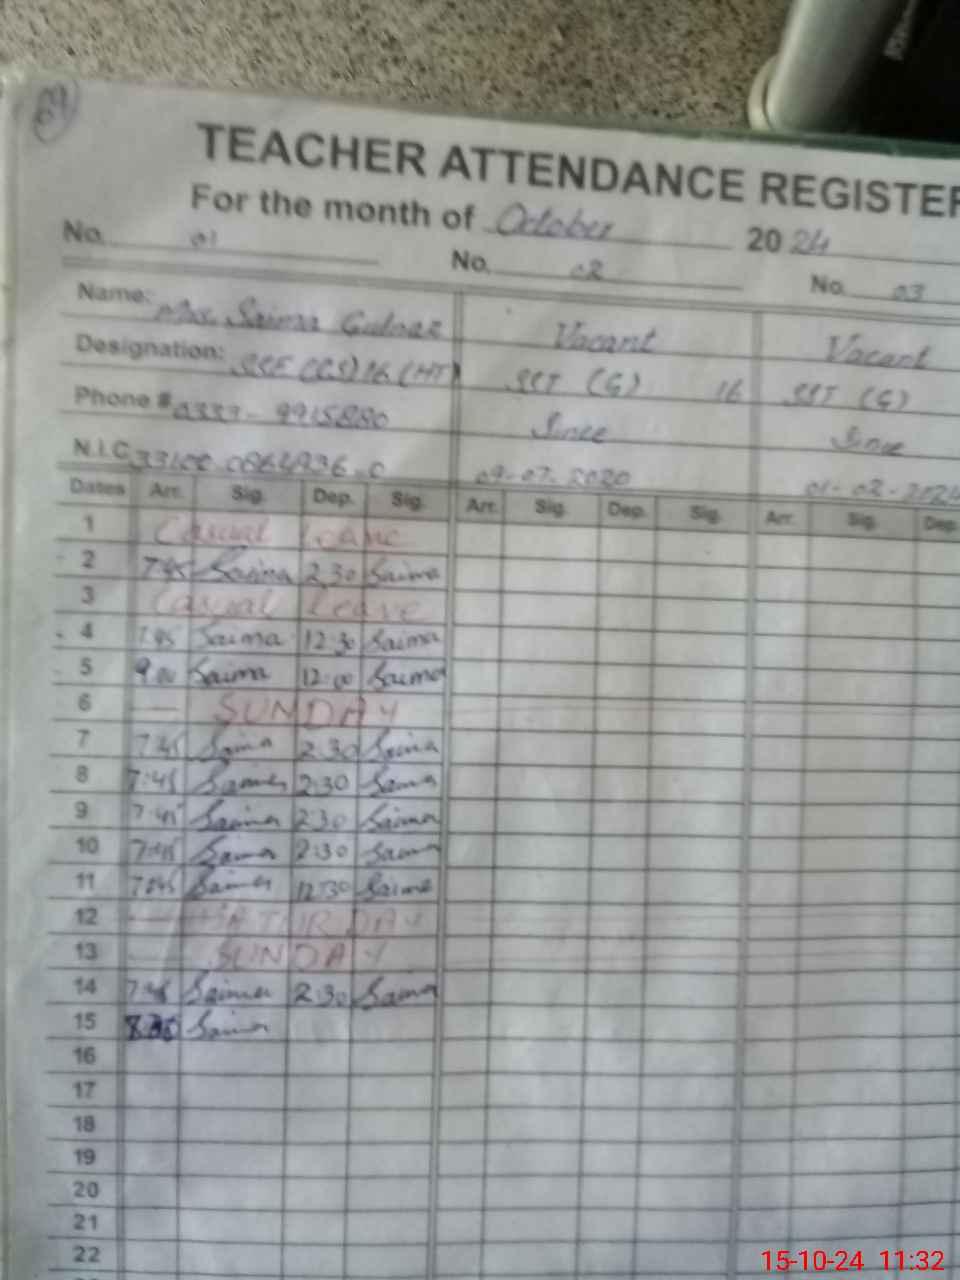 TEACHER ATTENDANCE REGISTER
For the month of October 2024
No. 01 No. 02 No. 03
Name: Mrs. Saima Gulnaz Vacant Vacant
Designation: SSE (CS) 16 (HT) SST (G) 16 SST (G)
Phone # 0337-9915880 Since Since
N.I.C 09-07-2020 01-02-2024
Dates Arr. Sig. Dep. Sig. Arr. Sig. Dep. Sig. Arr. Sig. Dep.
1 Casual Leave
2 7:45 Saima 2:30 Saima
3 Casual Leave
4 7:45 Saima 12:30 Saima
5 9:00 Saima 12:00 Saima
6 SUNDAY
7 7:45 Saima 2:30 Saima
8 7:45 Saima 2:30 Saima
9 7:45 Saima 2:30 Saima
10 7:45 Saima 2:30 Saima
11 7:45 Saima 12:30 Saima
12 SATURDAY
13 SUNDAY
14 7:45 Saima 2:30 Saima
15 Saima
16
17
18
19
20
21
22
15-10-24 11:32